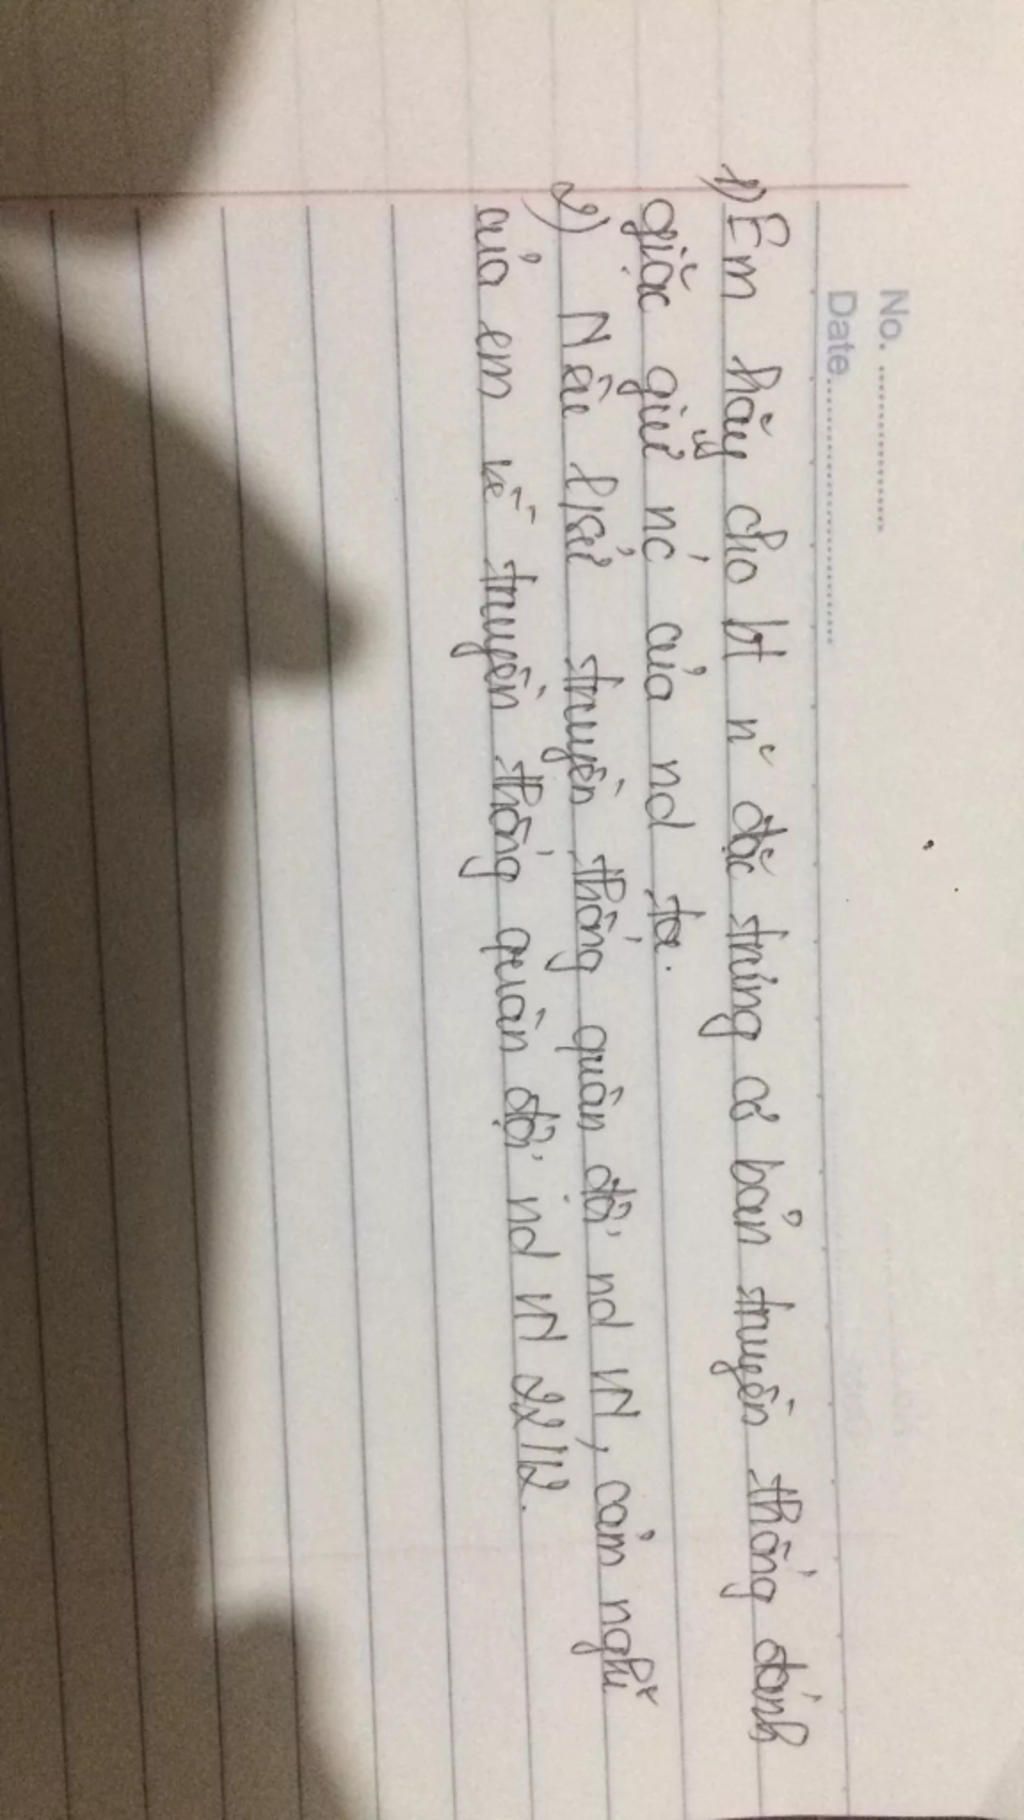 No. ....................
Date................................
1) Em hãy cho bt n~ đặc trưng cơ bản truyền thống đánh
giặc giữ nc của nd ta.
2) Nêu lịsử truyền thống quân đội nd VN, cảm nghĩ
của em về truyền thống quân đội nd VN 22/12.